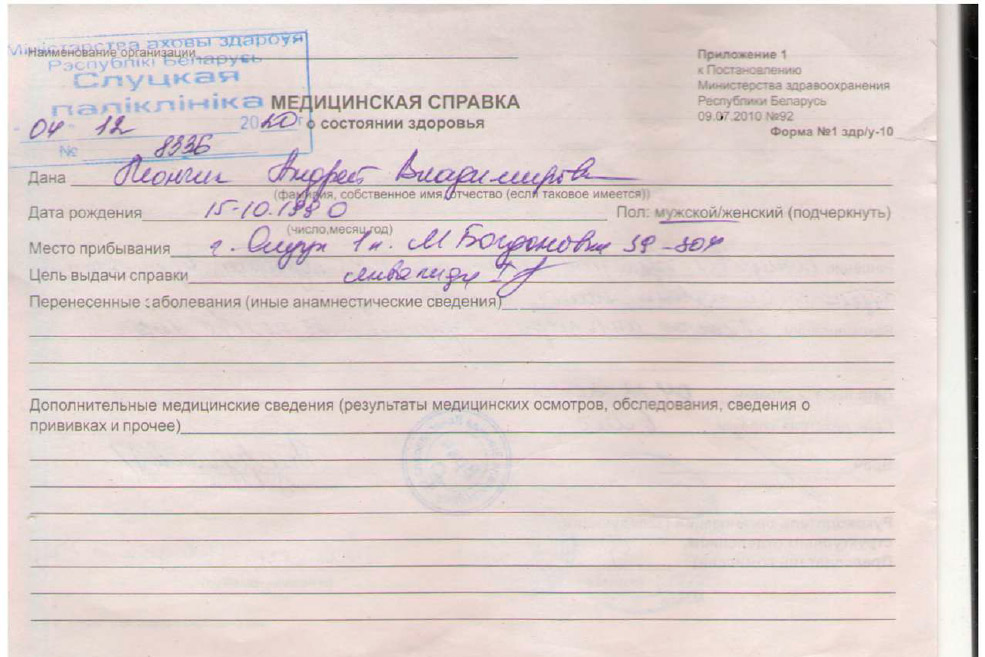 Міністэрства аховы здароўя
Рэспублікі Беларусь
Слуцкая
паліклініка
04 12 2020 г.
№ 8336
Наименование организации
Приложение 1
к Постановлению
Министерства здравоохранения
Республики Беларусь
09.07.2010 №92
Форма №1 здр/у-10
МЕДИЦИНСКАЯ СПРАВКА
о состоянии здоровья
Дана Андрей Владимирович
(фамилия, собственное имя, отчество (если таковое имеется))
Дата рождения 15.10.1990 Пол: мужской/женский (подчеркнуть)
(число,месяц,год)
Место прибывания г. Слуцк 1 п. М Богдановича 39-
Цель выдачи справки
Перенесенные заболевания (иные анамнестические сведения)
Дополнительные медицинские сведения (результаты медицинских осмотров, обследования, сведения о
прививках и прочее)